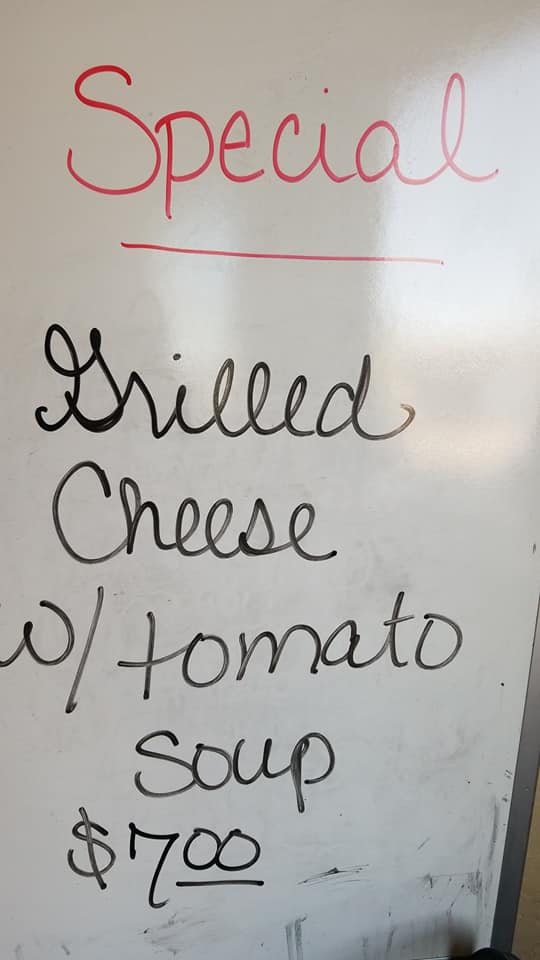 Special
Grilled
Cheese
w/ tomato
soup
$7.00